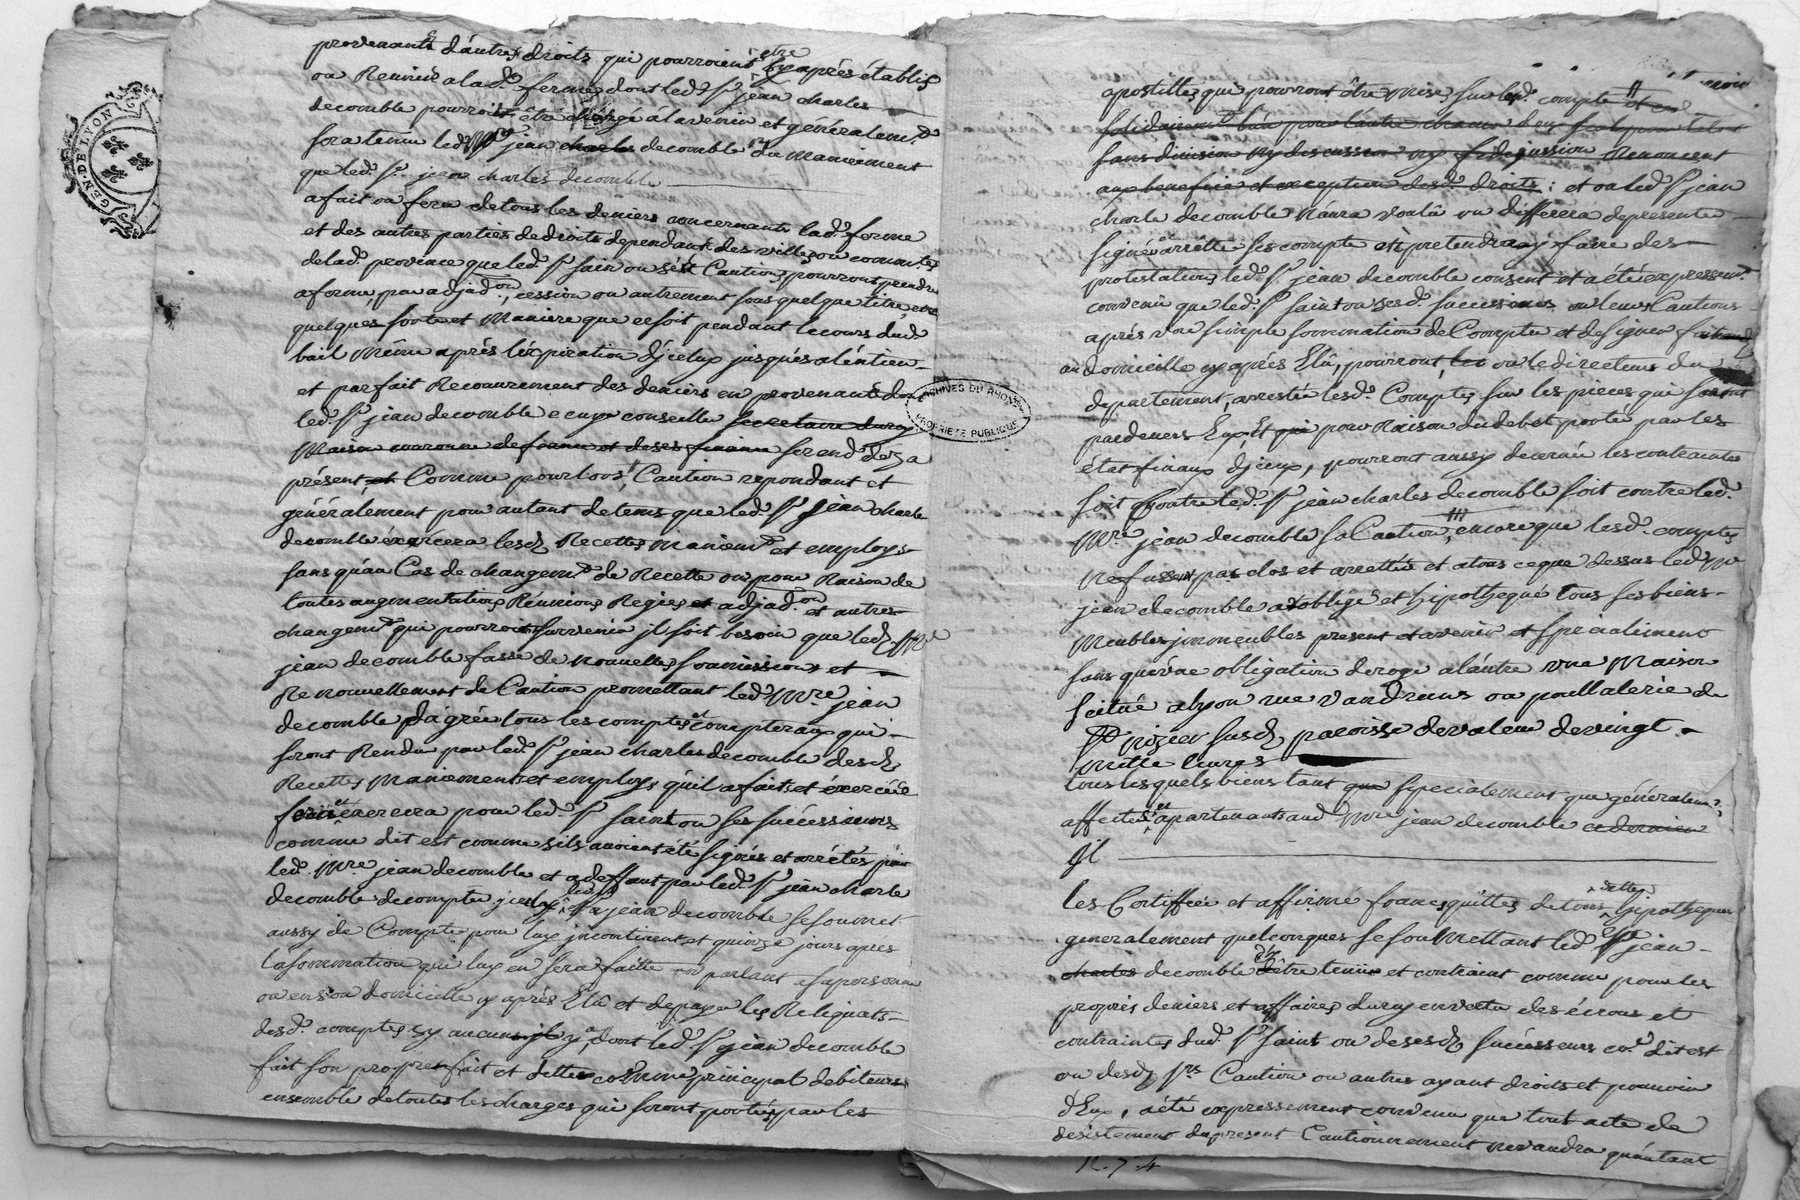 GEN. DE LYON
provenants d'autres droits qui pourroient être cy après établis
ou Reunies a lad. ferme, dont led. Sr jean charles
decomble pourroit être chargé à lavenir et généralemt.
sera tenu led. jean charles decomble du Maniement
que led. Sr. jean charles decomble
a fait ou fera de tous les deniers concernants lad. ferme
et des autres parties de droits dependant des villes ou comtés
de lad. province que led. Sr Saint ou ses Cautions pourront prendre
a ferme, par adjadon, cession ou autrement sous quelque titre,
quelques sorte et Maniere que ce soit pendant le cours dud.
bail Même après l'expiration d'jceluy jusques a l'éntier
et parfait Recouvrement des deniers en provenants dont
led. Sr jean decomble ecuyer conseiller secretaire du roy
Maison couronne de france et de ses finances se rend dez a
présent et Comme pour lors, Caution repondant et
généralement pour autant de tems que led. Sr jean charle
decomble éxercera lesd. Recettes maniemt. et employs
sans qu'au Cas de changemt. de Recette ou pour Raison de
toutes augmentations Réunions Regies et adjadon. et autres
changemt. qui pourroit survenir jl soit besoin que led. Mre
jean decomble fasse de nouvelles soumissions et
Renouvellement de Caution promettant led. Mre jean
decomble d'agréer tous les comptes et compteraux qui
seront Rendu par led. Sr jean charles decomble desd.
Recettes Maniements et employs qu'il a faits et éxercés
fera et exercera pour led. Sr saint ou ses successeurs
comme dit est comme s'ils avoient été signés et arrétés par
led. Mre jean decomble et a deffaut par led. Sr jean charle
decomble de compter jceluy led. Sr jean decomble se soumet
aussy de Compter pour luy jncontinent et quinze jours après
la sommation qui luy en sera faitte en parlant a sa personne
ou en son domicille cy après Elû et de payer les Reliquats
desd. comptes sy aucuns jl y a, dont led. Sr jean decomble
fait son propre fait et dette comme principal debiteur
ensemble de toutes les charges qui seront portées par les
ARCHIVES DU RHONE
PROPRIETE PUBLIQUE
apostilles qui pourront être mises sur led. compte et
solidairement l'un pour l'autre chacun d'eux seul pour le tout
sans division ny discussion ny fidejussion Renoncent
aux benefice et exception desd. droits : et ou led. Sr jean
charle decomble n'aura voulû ou differera de presenter
signé et arrétté ses compte et y pretendra y faire des
protestations, led. Sr jean decomble consent et a été expressemt.
convenû que led. Sr saint ou sesd. successeurs ou leurs Cautions
après une simple sommation de Compter et de signer
au domicille cy après Elû, pourront, ou le directeur du
departement, arrester lesd. Comptes sur les pieces qui seront
pardevers Eux, Et pour Raison du debet porté par les
état finaux djceux, pourront aussy decerner les contraintes
soit contre led. Sr jean charles decomble soit contre led.
Mre jean decomble sa Caution, encore que lesd. comptes
ne fussent pas clos et arrettés et a tous ce que dessus led. Mre
jean decomble a obligé et hipothequé tous ses biens
Meubles jmmeubles present et avenir et spécialement
sans qu'une obligation deroge a l'autre une Maison
scitué a lyon rue vandrans ou poullalerie de
St nizier susd. paroisse de valeur de vingt
mille livres
tous lesquels biens tant que spécialement que généralemt.
affectés et apartenants aud. Mre jean decomble ce dernier
Jl
les Certiffiée et affirmé francs quittes de tous dettes hipotheques
generalement quelconques se soumettant led. Sr jean
charles decomble d'être tenu et contraint comme pour les
propres deniers et affaires du roy en vertu des écrous et
contraintes dud. Sr saint ou de sesd. successeurs co.e dit est
ou desd. Srs Caution ou autres ayant droits et pouvoir
d'Eux, a été expressement convenu que tout acte de
desistement du present Cautionnement ne vaudra qu'autant